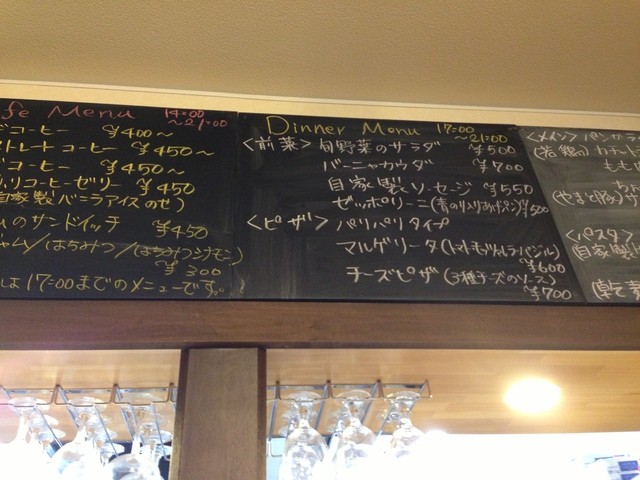 fe Menu 14:00
～21:00
コーヒー ¥400～
ストレートコーヒー ¥450～
コーヒー ¥450～
コーヒーゼリー ¥450
自家製バニラアイスのせ)
のサンドイッチ ¥450
ャム/はちみつ/はちみつシナモン
¥300
は17:00までのメニューです。
Dinner Menu 17:00
～21:00
<前菜> 旬野菜のサラダ ¥500
バーニャカウダ ¥700
自家製ソーセージ ¥550
ゼッポリーニ(青のり入りあげパン) ¥500
<ピザ> パリパリタイプ
マルゲリータ(トマト・モッツァレラ・バジル)
¥600
チーズピザ(3種チーズのソース)
¥700
<メイン> パン、サラ
(若鶏の) カチャト
もも
(やまと豚の)
<パスタ>
自家製
(乾